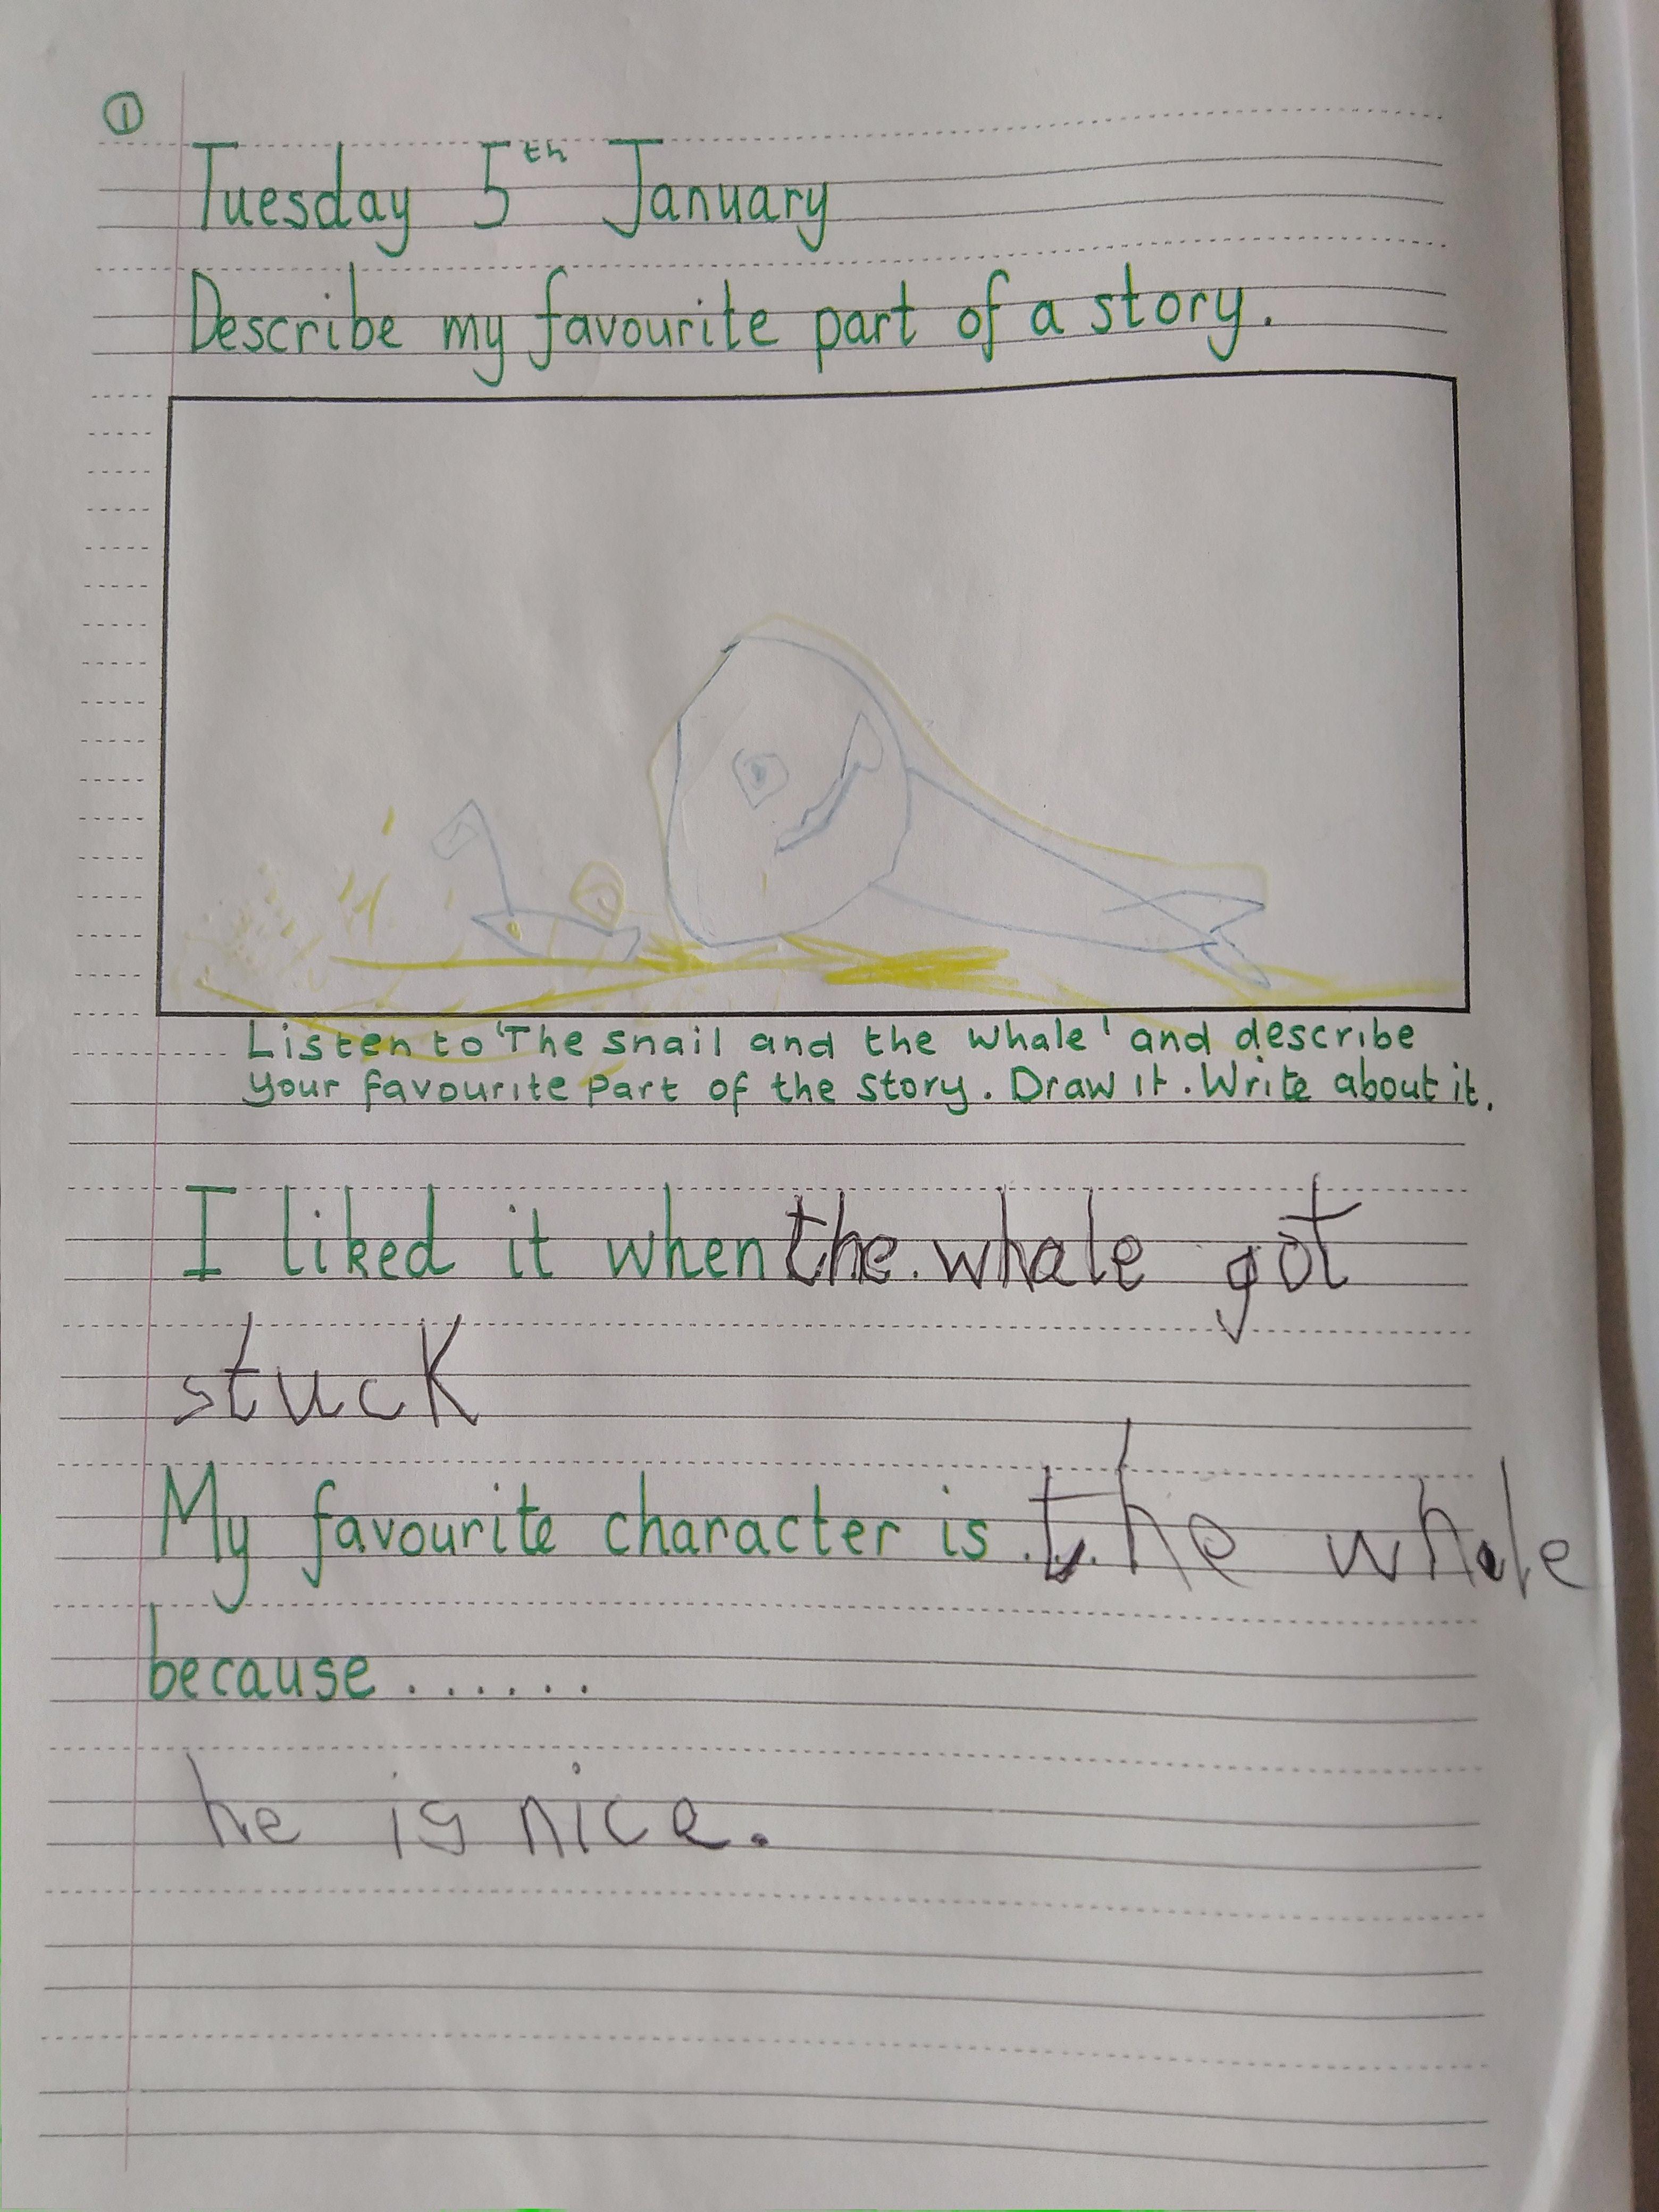 1
Tuesday 5th January
Describe my favourite part of a story.
Listen to 'The snail and the whale' and describe
your favourite part of the story. Draw it. Write about it.
I liked it when the. whale got
stuck
My favourite character is .the whale
because ......
he is nice.